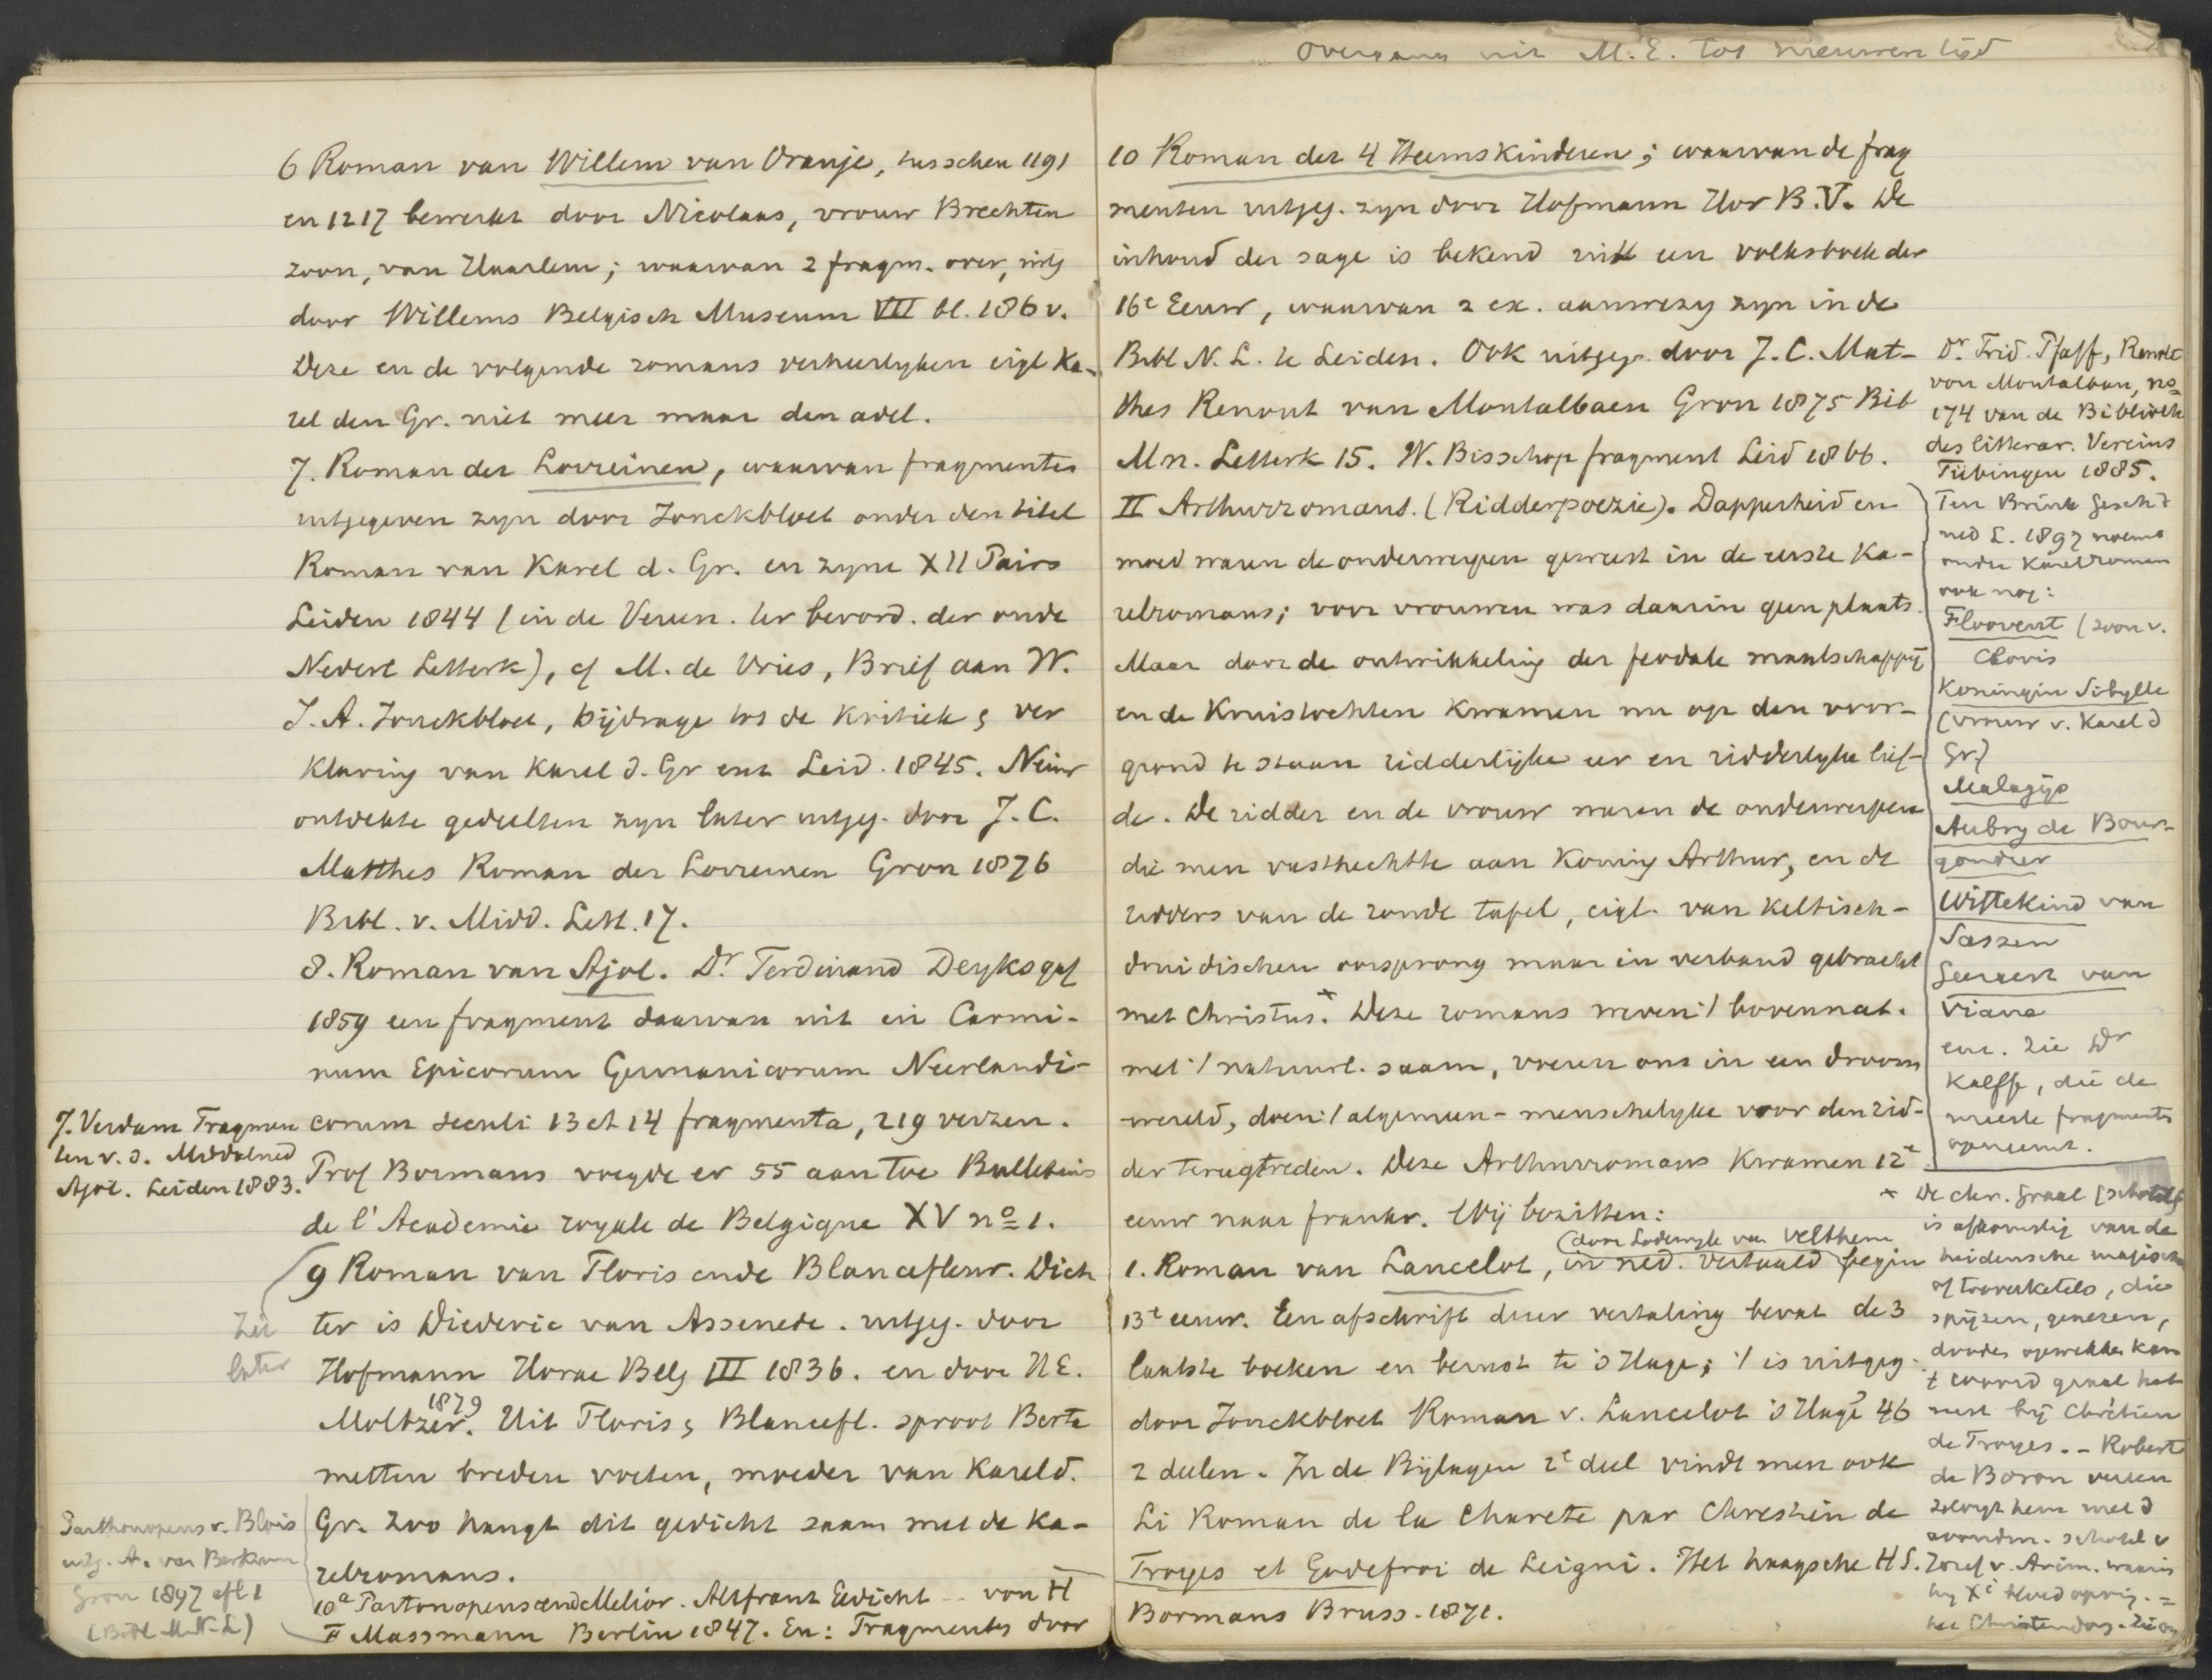 6 Roman van Willem van Oranje, tusschen 1191
en 1217 bewerkt door Nicolaas, vrouw Brechten
zoon, van Haarlem; waarvan 2 fragm. over, uitg
door Willems Belgisch Museum VII bl. 186 v.
Deze en de volgende romans verheerlyken eigl Ka-
rel den Gr. niet meer maar den adel.
7. Roman der Lorreinen, waarvan fragmenten
uitgegeven zyn door Jonckbloet onder den titel
Roman van Karel d. Gr. en zyne XII Pairs
Leiden 1844 (in de Vereen. ter bevord. der oude
Nederl Letterk), cf M. de Vries, Brief aan W.
J. A. Jonckbloet, bijdrage tot de kritiek & ver
klaring van Karel d. Gr enz Leid. 1845. Nieuw
ontdekte gedeelten zyn later uitgeg. door J. C.
Matthes Roman der Lorreinen Gron 1876
Bibl. v. Midd. Lett. 17.
8. Roman van Ajol. Dr Ferdinand Deyks gaf
1859 een fragment daarvan uit in Carmi-
num Epicorum Germanicorum Neerlandi-
corum seculi 13 et 14 fragmenta, 219 verzen.
Prof Bormans voegde er 55 aan toe Bulletins
de l'Academie royale de Belgique XV no 1.
J. Verdam Fragmen
ten v. d. Middelned
Ajol. Leiden 1883.
9 Roman van Floris ende Blancefleur. Dich
ter is Diederic van Assenede. uitgeg. door
Hofmann Horae Belg III 1836. en door H E.
Moltzer. 1879 Uit Floris & Blancefl. sproot Berte
metten breden voeten, moeder van Karel d.
Gr. Zoo hangt dit gedicht zaam met de Ka-
relromans.
Zie
later
10a Partonopeus ende Melior. Altfranz Gedicht -- von H
F Massmann Berlin 1847. En: Fragmenten door
Parthonopeus v. Blois
uitg. A. van Berkum
Gron 1897 afl 1
(Bibl M. N. L)
Overgang uit M. E. tot nieuwen tijd
10 Roman der 4 Heemskinderen; waarvan de frag
menten uitgeg. zyn door Hofmann Hor B. V. De
inhoud der sage is bekend uit een volksboek der
16e Eeuw, waarvan 2 ex. aanwezig zyn in de
Bibl N. L. te Leiden. Ook uitgeg. door J. C. Mat-
thes Renout van Montalbaen Gron 1875 Bib
Mn. Letterk 15. W. Bisschop fragment Leid 1866.
II Arthurromans. (Ridderpoezie). Dapperheid en
moed waren de onderwerpen geweest in de eerste Ka-
relromans; voor vrouwen was daarin geen plaats.
Maar door de ontwikkeling der feodale maatschappij
en de Kruistochten kwamen nu op den voor-
grond te staan ridderlijke eer en ridderlyke lief-
de. De ridder en de vrouw waren de onderwerpen
die men vasthechtte aan Koning Arthur, en de
ridders van de ronde tafel, eigl. van keltisch-
druidischen oorsprong maar in verband gebracht
met Christus. x Deze romans weven 't bovennat.
met 't natuurl. saam, voeren ons in een droom
wereld, doen 't algemeen-menschelyke voor den rid-
der terugtreden. Deze Arthurromans kwamen 12e
eeuw naar frankr. Wij bezitten:
1. Roman van Lancelot, in ned. vertaald (door Lodewyk van Velthem begin
13e eeuw. Een afschrift dier vertaling bevat de 3
laatste boeken en berust te 's Hage; 't is uitgeg.
door Jonckbloet Roman v. Lancelot 's Hage 46
2 deelen. In de Bijlagen 2e deel vindt men ook
Li Roman de la Charete par Chrestien de
Troyes et Godefroi de Leigni. Het haagsche H S.
Bormans Bruss. 1871.
Dr Frid. Pfaff, Renolt
von Montalban, no
174 van de Biblioth
des litterar. Vereins
Tübingen 1885.
Ten Brink Gesch d
ned L. 1897 noemt
onder Karelromans
ook nog:
Floovent (zoon v.
Clovis
Koningin Sibylle
(vrouw v. Karel d
Gr)
Malagijs
Aubry de Bour-
gondier
Wittekind van
Sassen
Geeraert van
Viane
enz. Zie Dr
Kalff, die de
meeste fragmenten
opneemt.
x De chr. Graal (schotel)
is afkomstig van de
heidensche magische
of tooverketels, die
spijzen, genezen,
dooden opwekken kan
t woord graal het
eerst bij Chrétien
de Troyes. - Robert
de Boron vereen
zelvigt hem met d
avondm. schotel v
Jozef v. Arim. waarin
hy Xi bloed opving. =
het Christendom. Zie op